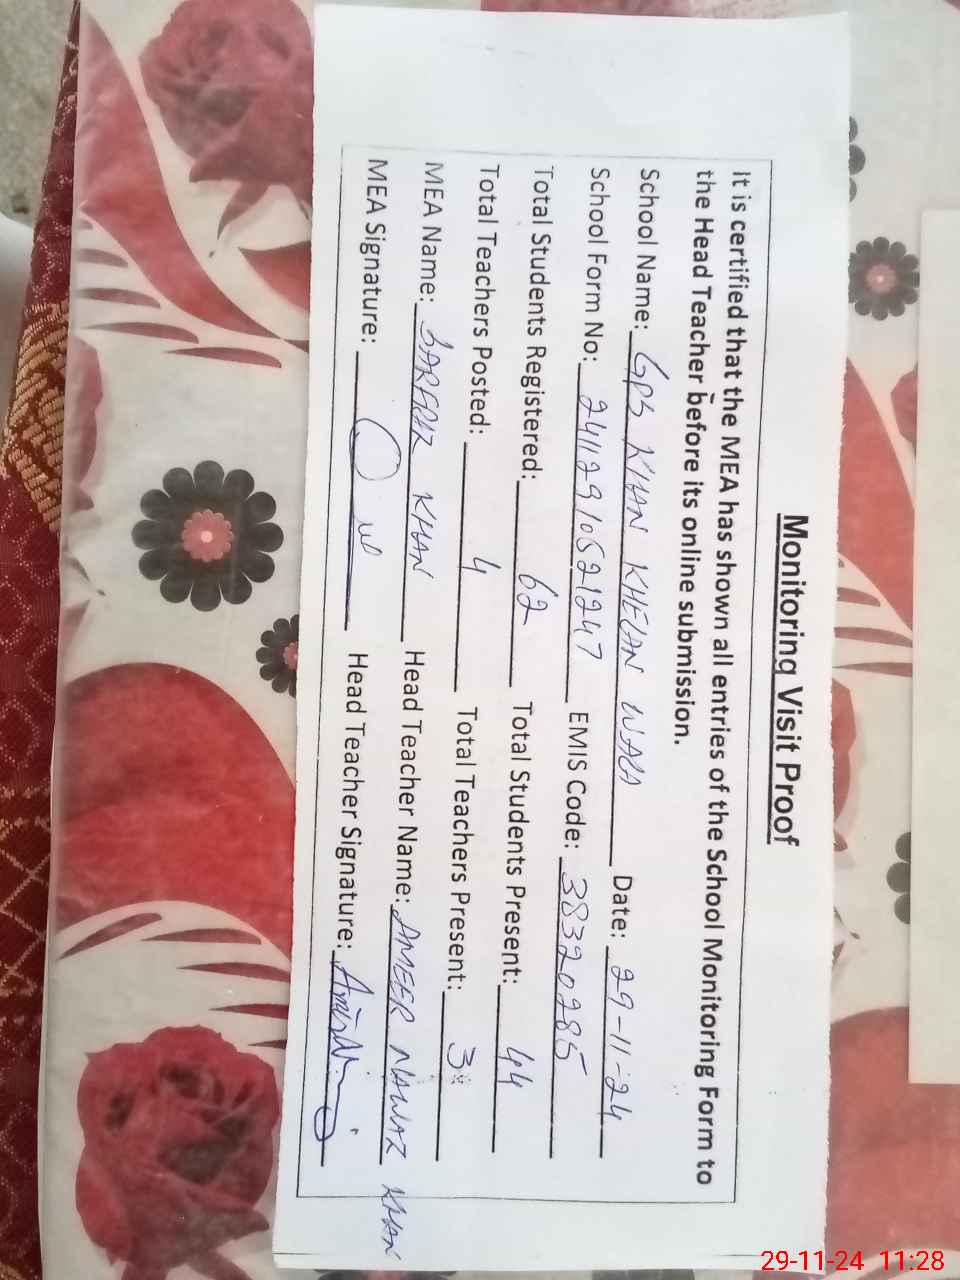 Monitoring Visit Proof
It is certified that the MEA has shown all entries of the School Monitoring Form to
the Head Teacher before its online submission.
School Name: GPS KHAN KHELAN WALA Date: 29-11-24
School Form No: 24112910521247 EMIS Code: 38320285
Total Students Registered: 62 Total Students Present: 44
Total Teachers Posted: 4 Total Teachers Present: 3
MEA Name: SARFRAZ KHAN Head Teacher Name: AMEER NAWAZ KHAN
MEA Signature: Head Teacher Signature:
29-11-24 11:28